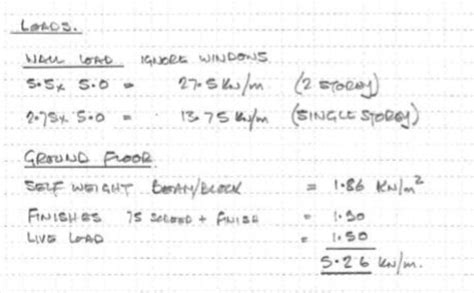 LOADS.
WALL LOAD IGNORE WINDOWS
5.5x 5.0 = 27.5 kN/m (2 STOREY)
2.75x 5.0 = 13.75 kN/m (SINGLE STOREY)
GROUND FLOOR
SELF WEIGHT BEAM/BLOCK = 1.86 KN/m²
FINISHES 75 SCREED + FINISH = 1.90
LIVE LOAD = 1.50
5.26 kN/m.